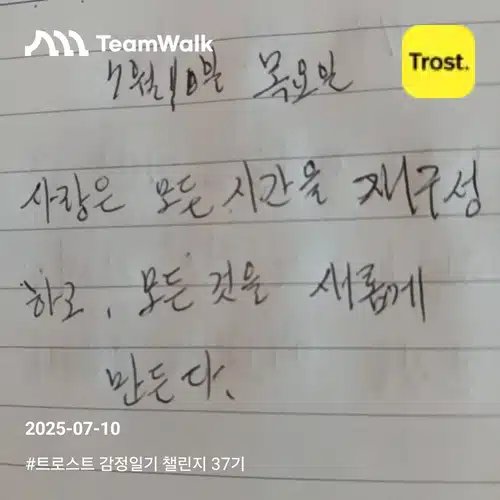 TeamWalk
Trost.
7월10일 목요일
사랑은 모든 시간을 재구성
하고, 모든 것을 새롭게
만든다.
2025-07-10
#트로스트 감정일기 챌린지 37기